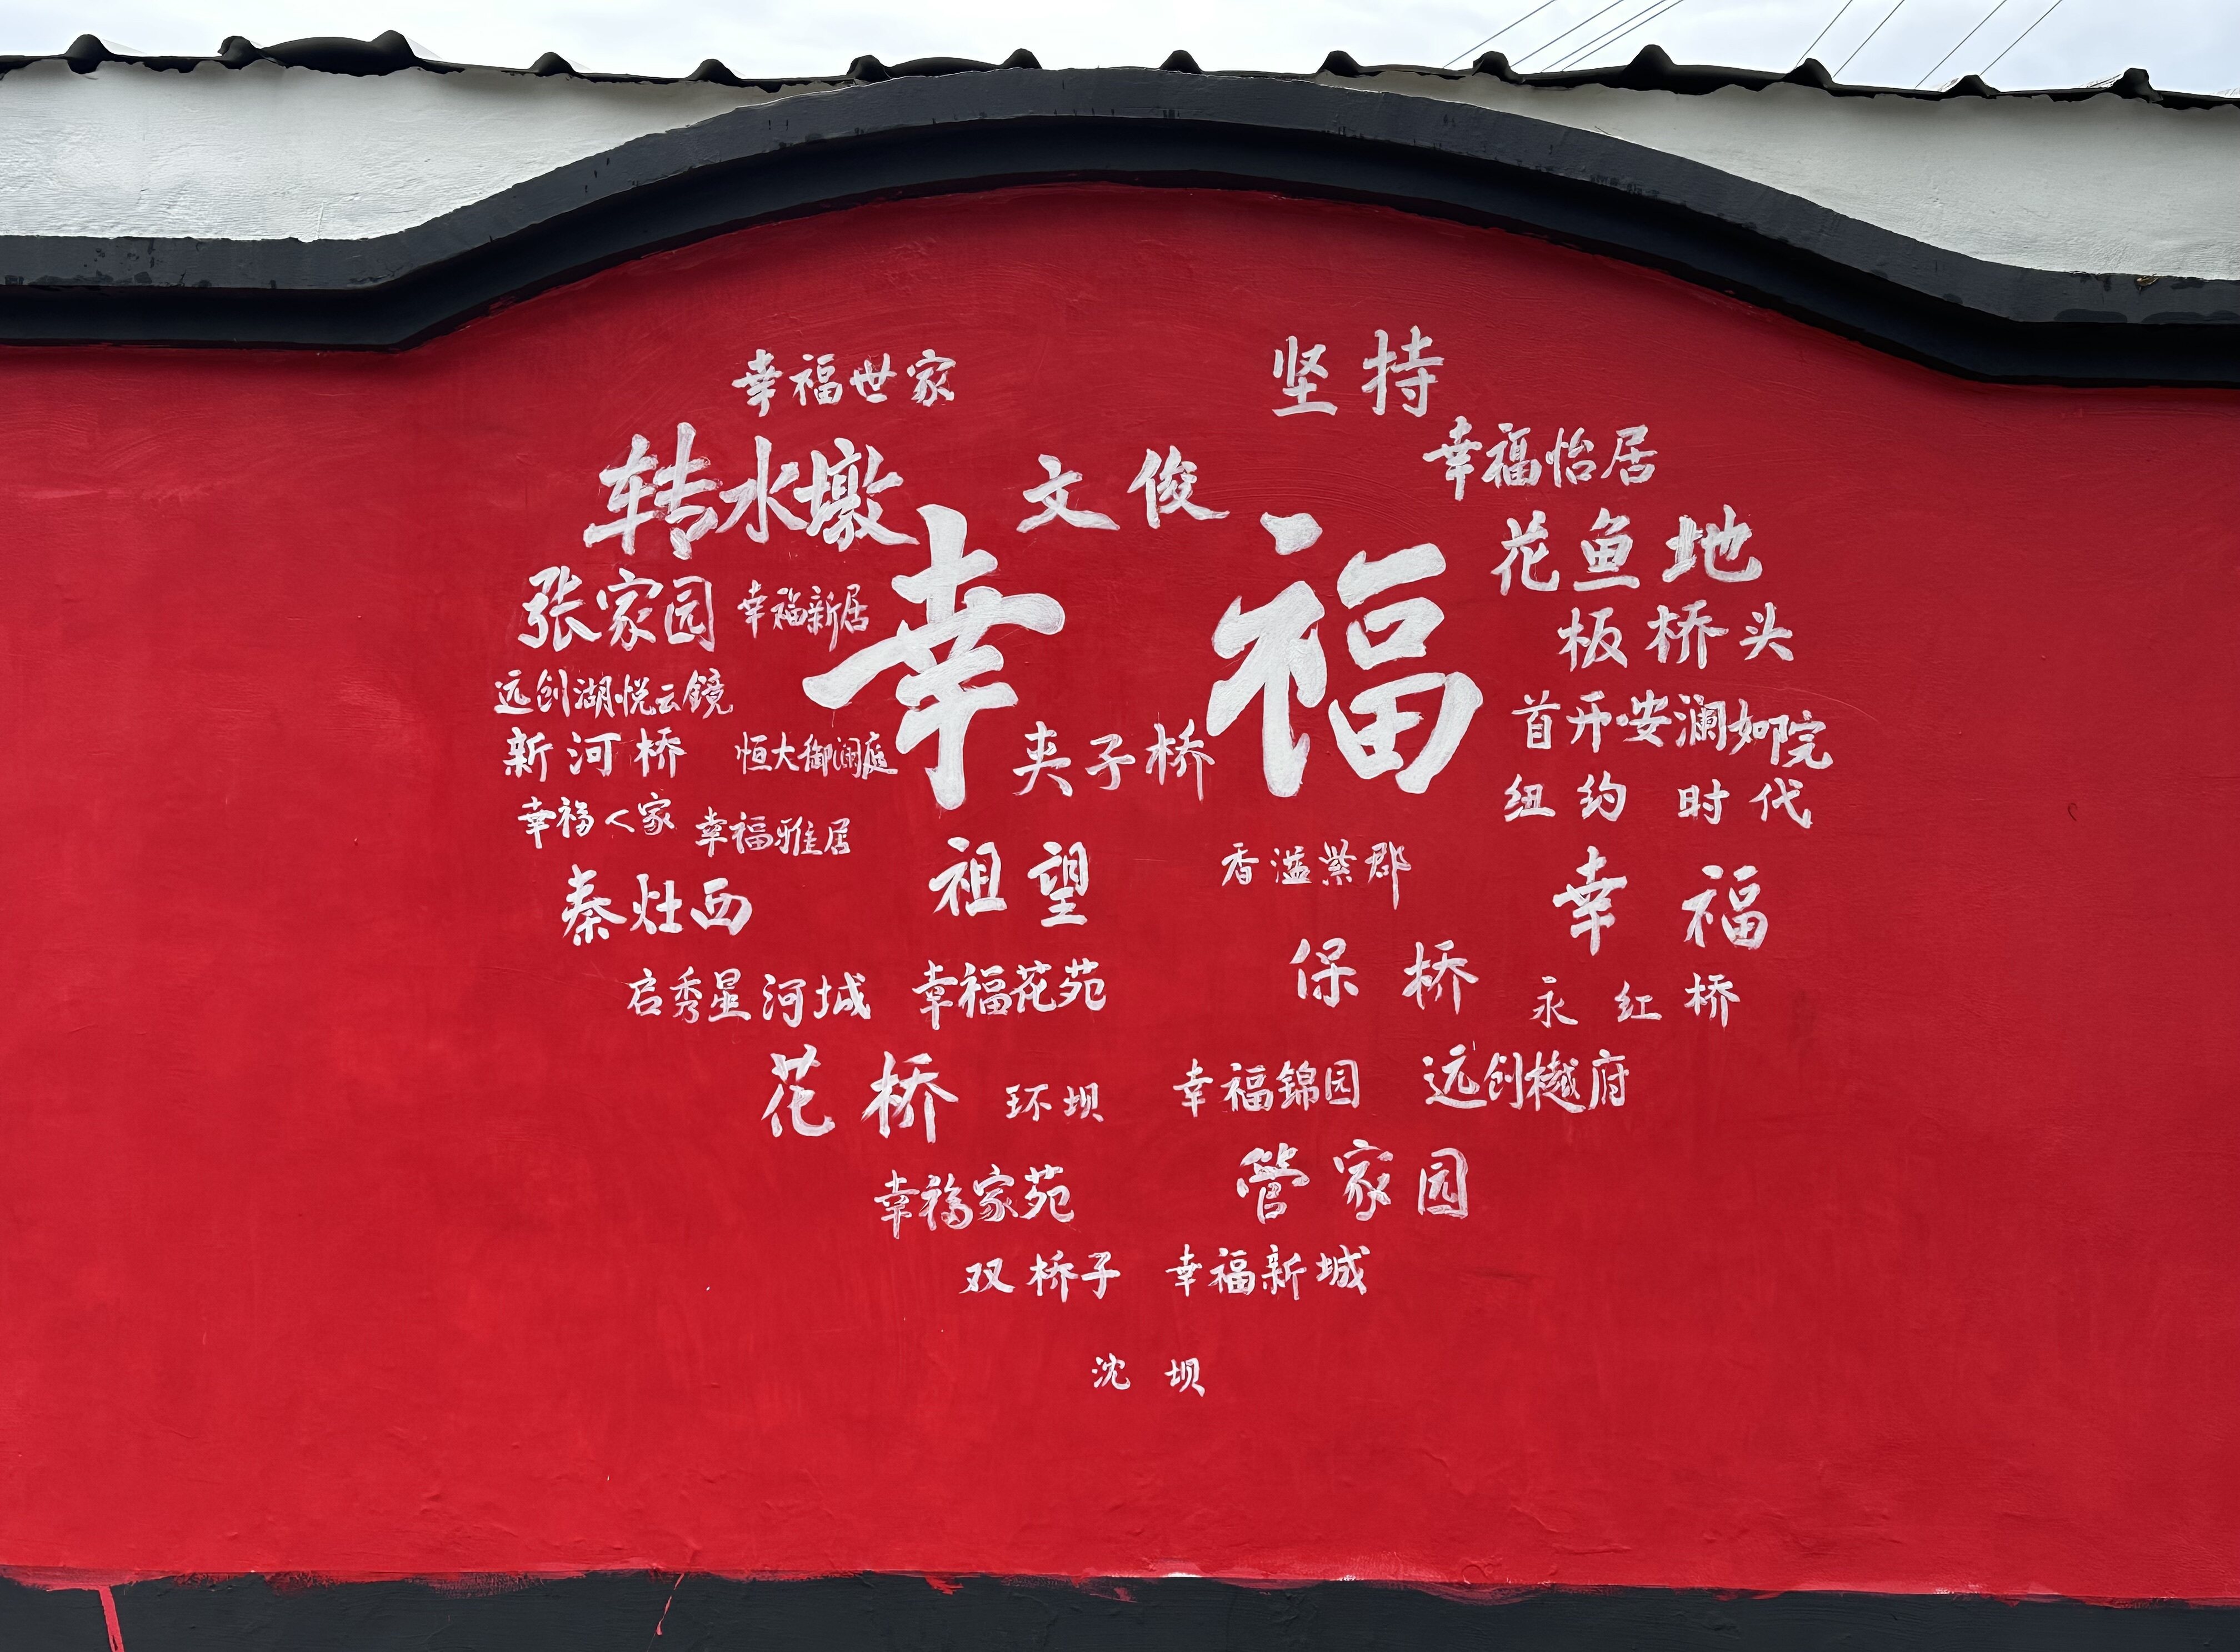 幸福世家
坚持
转水墩
文俊
幸福怡居
花鱼地
张家园
幸福新居
幸福
板桥头
远创湖悦云镜
首开安澜如院
新河桥
恒大御澜庭
夹子桥
纽约时代
幸福人家
幸福雅居
祖望
香溢紫郡
幸福
秦灶西
保桥
永红桥
启秀星河城
幸福花苑
花桥
环坝
幸福锦园
远创樾府
幸福家苑
管家园
双桥子
幸福新城
沈坝